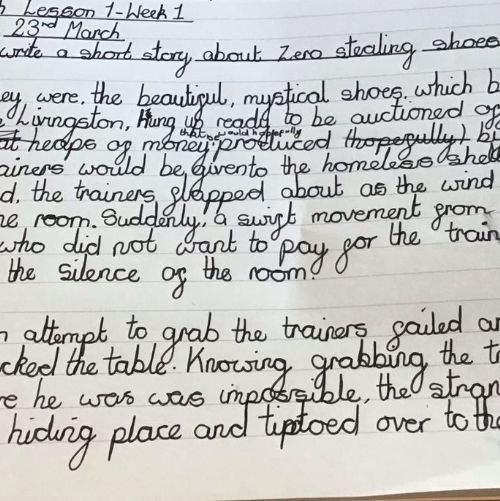 Lesson 1-Week 1
23rd March
write a short story about Zero stealing shoes
ey were, the beautiful, mystical shoes, which b
Livingston, Hung up ready to be auctioned of
at heaps of money that would hopefully be produced (hopefully) b
ainers would be givento the homeless shel
d, the trainers flapped about as the wind
he room. Suddenly, a swift movement from
who did not want to pay for the train
the silence of the room.
attempt to grab the trainers failed a
cked the table. Knowing grabbing the t
re he was was impossible, the stran
hiding place and tiptoed over to the